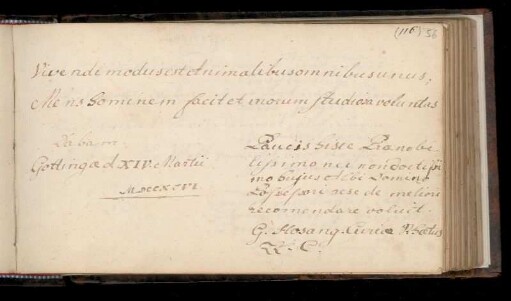 (116) 56
Vivendi modus est Animalibus omnibus unus,
Mens hominem facit et morum studiosa voluntas
Dabam
Gottingae d XIV. Martii
MDCCXCVI
Paucis hisce Praenobi
lissimo nec non doctissi
mo hujus Albi Domino
Possessori sese de meliori
recomendare voluit.
G. Hosang, Curiae Rhaetus